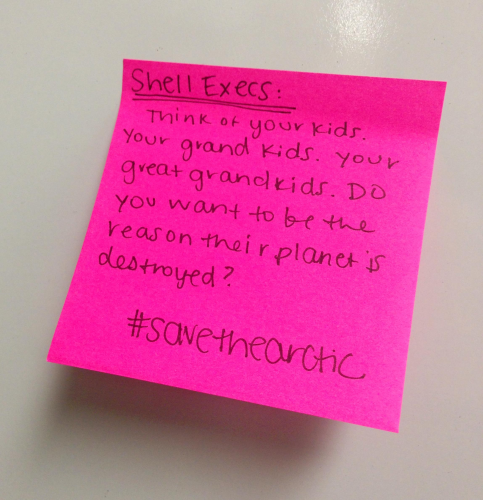 Shell Execs:
Think of your kids.
Your grand kids. Your
great grandkids. DO
you want to be the
reason their planet is
destroyed?
#savethearctic